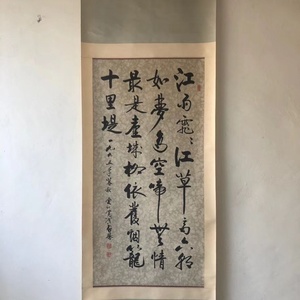 江雨霏〻江草齊六朝
如夢鳥空啼無情
最是臺城柳依舊烟籠
十里堤